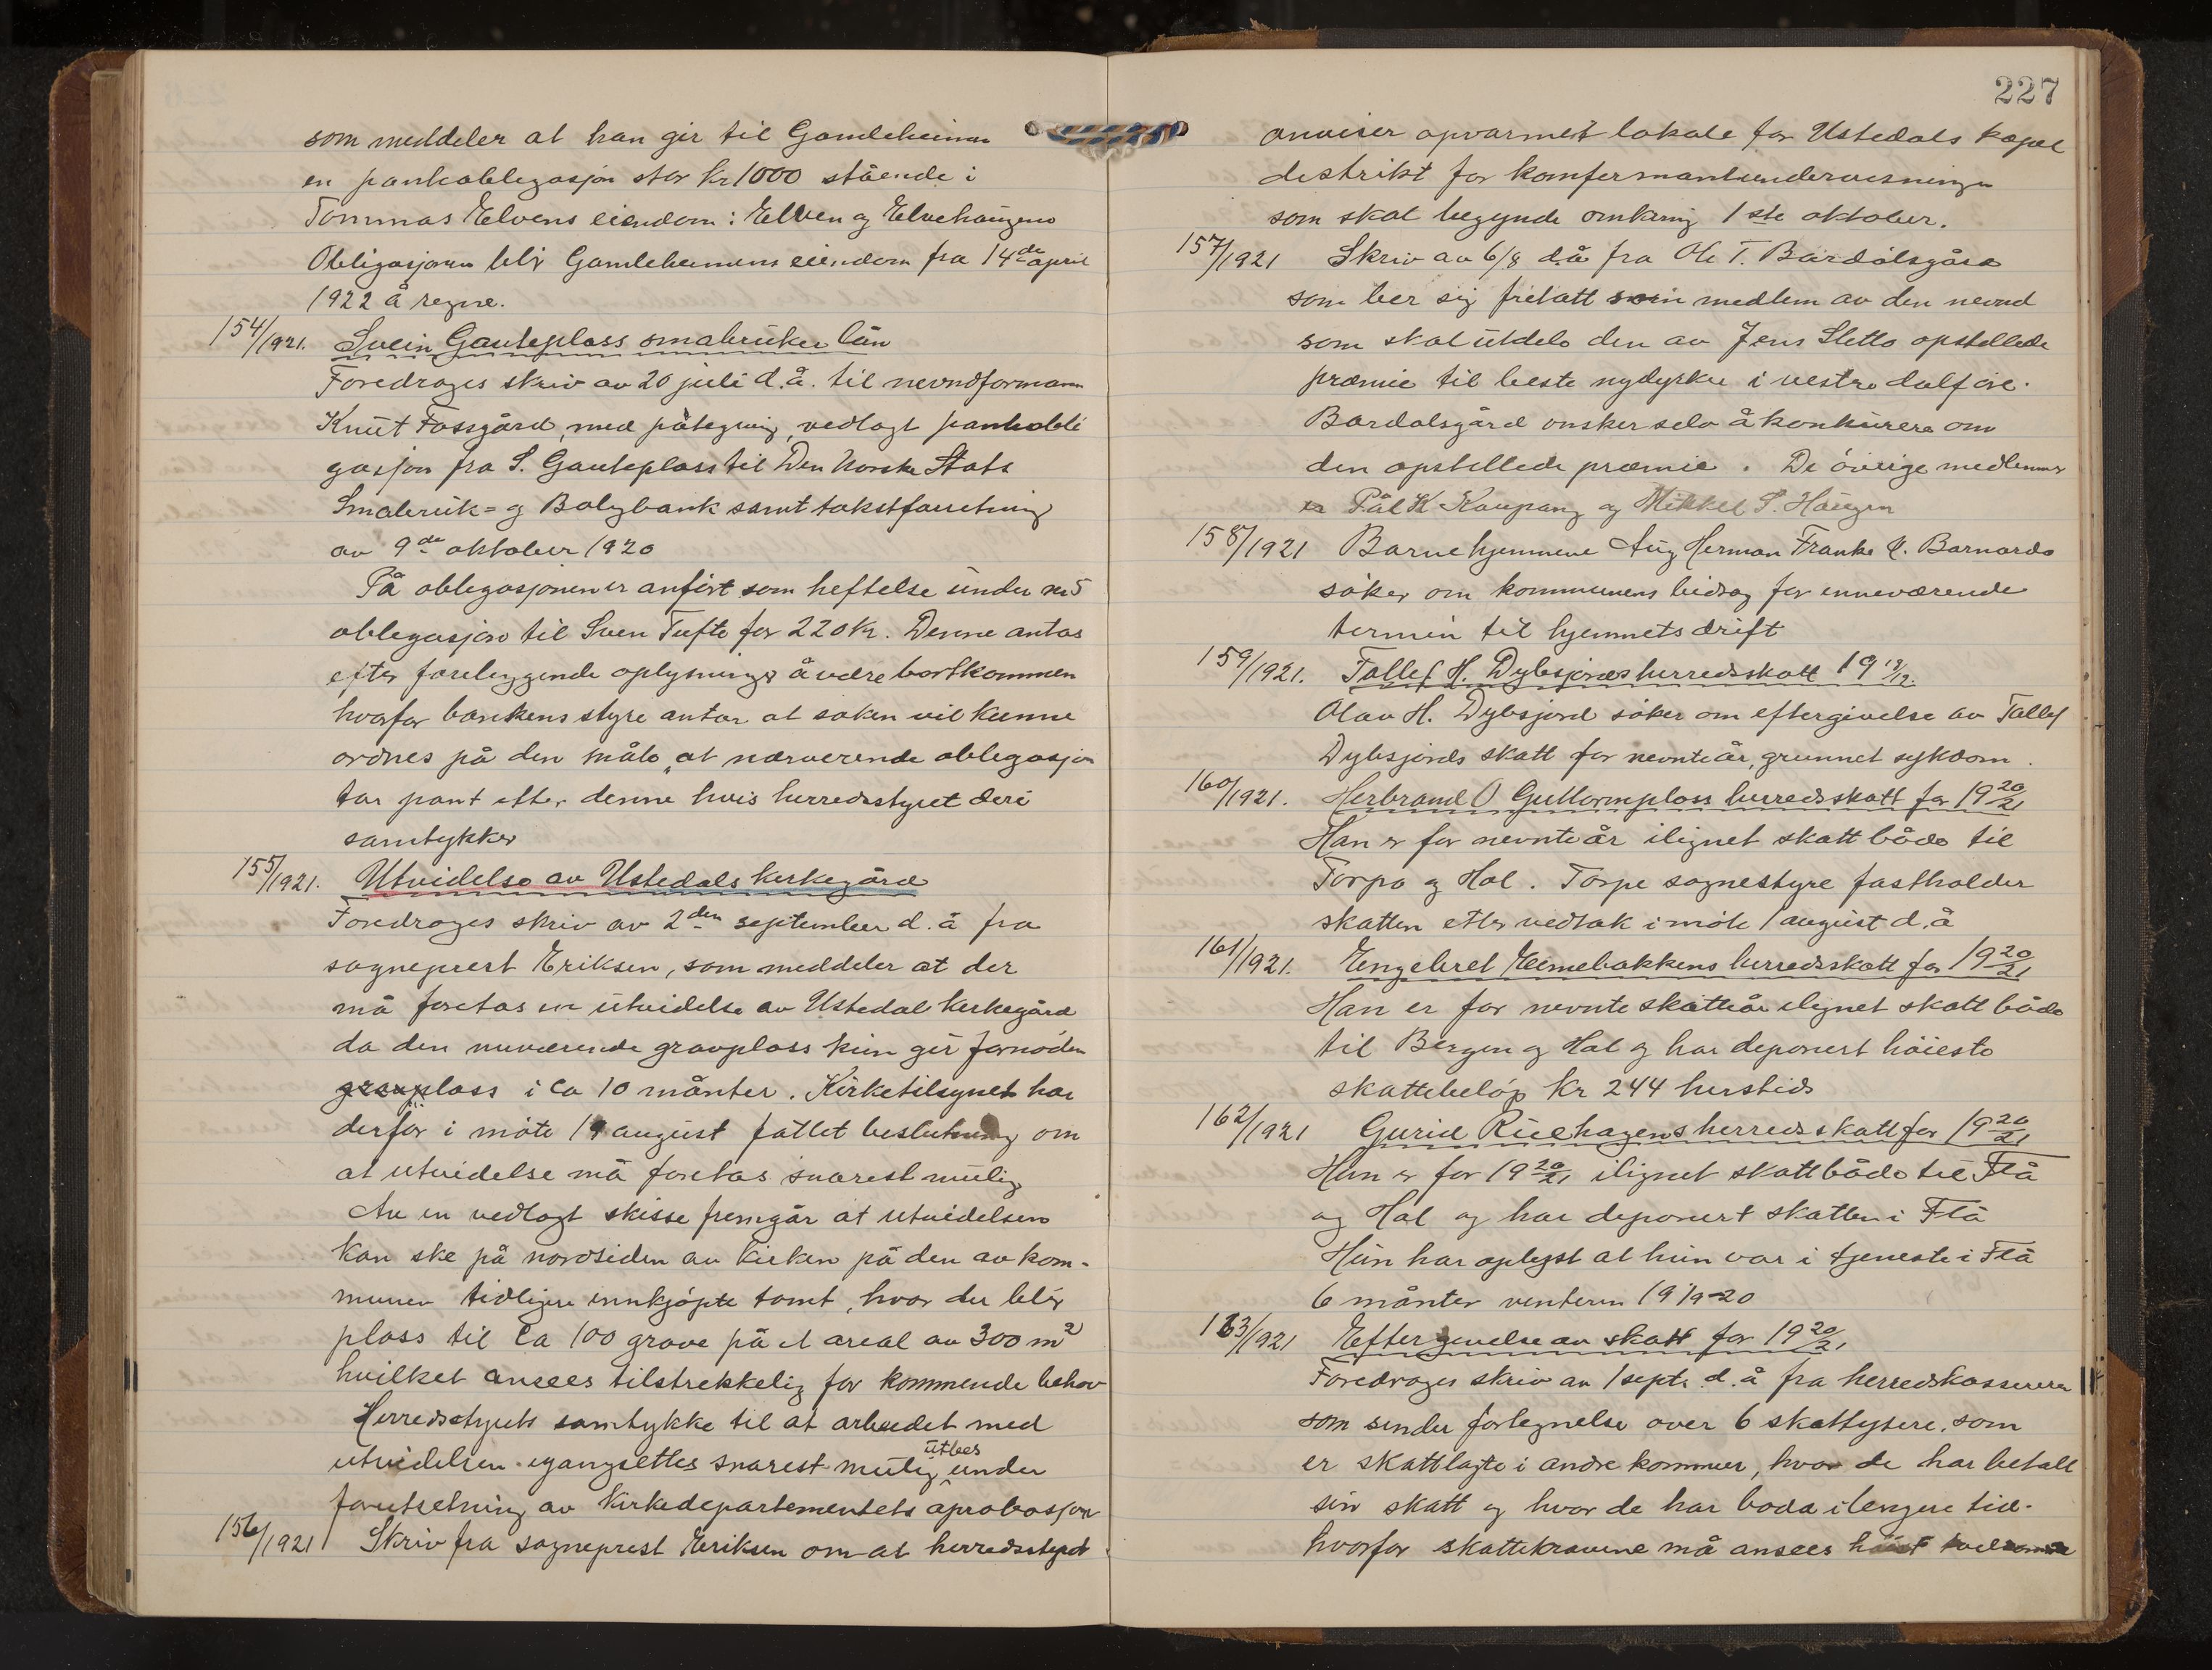 som meddeler at han gir til Gamleheimen
en pantobligasjon stor Kr 1000 stående i
Tommas Elvens eiendom: Elven og Elvehaugen
Obligasjonen blir Gamleheimens eiendom fra 14de april
1922 å regne.
154/1921. Svein Gauteplass småbruker lån
Foredrages skriv av 20 juli d.å. til nevndformann
Knut Fossgård, med påtegning, vedlagt pantobli
gasjon fra S. Gauteplass til Den Norske Stats
Småbruk= og Boligbank samt takstforretning
av 9de oktober 1920
På obligasjonen er anført som heftelse under nr 5
obligasjon til Sven Tufte for 220 Kr. Denne antas
efter foreliggende oplysninger å være bortkommen
hvorfor bankens styre antar at saken vil kunne
ordnes på den måte, at nærværende obligasjon
tar pant etter denne hvis herredsstyret deri
samtykker
155/1921. Utvidelse av Ustedals kirkegård
Foredrages skriv av 2den september d.å fra
sogneprest Eriksen, som meddeler at der
må foretas en utvidelse av Ustedal kirkegård
da den nuværende gravplass kun gir fornøden
gravplass i ca 10 månter. Kirketilsynet har
derfor i møte 19 august fattet beslutning om
at utvidelse må foretas snarest mulig
Av en vedlagt skisse fremgår at utvidelsen
kan ske på nordsiden av kirken på den av kom-
munen tidligere innkjøpte tomt, hvor der blir
plass til ca 100 grave på et areal av 300 m2
hvilket ansees tilstrekkelig for kommende behov
Herredsstyrets samtykke til at arbeidet med
utvidelsen igangsettes snarest mulig utbes under
forutsetning av Kirkedepartementets aprobasjon
156/1921 Skriv fra sogneprest Eriksen om at herredsstyret
227
anviser opvarmet lokale for Ustedals kapel
distrikt for konfermantundervisningen
som skal begynde omkring 1ste oktober.
157/1921 Skriv av 6/8 d.å fra Ole T. Bårdålsgård
som ber sig fritatt som medlem av den nevnd
som skal utdele den av Jens Sletto opstillede
præmie til beste nydyrker i vestre dalføre.
Bardalsgård ønsker selv å konkurere om
den opstillede præmie. De øvrige medlemmer
er Pål K Kaupang og Mikkel S. Haugen
158/1921 Barnehjemmene Aug Herman Franke & Barnardo
søker om kommunens bidrag for inneværende
termin til hjemmets drift
159/1921. Tollef H. Dybsjords herredsskatt 19 12/12.
Olav H. Dybsjord søker om eftergivelse av Tollef
Dybsjords skatt for nevnte år, grunnet sykdom.
160/1921. Herbrand O Guttormplass herredsskatt for 19 20/21
Han er for nevnte år ilignet skatt både til
Torpo og Hol. Torpe sognestyre fastholder
skatten etter vedtak i møte 1 august d.å
161/1921. Engebret Eimebakkens herredsskatt for 19 20/21
Han er for nevnte skatteår ilignet skatt både
til Bergen og Hol og har deponert høieste
skattebeløp Kr 244 herstids
162/1921 Gurid Ruehagens herredsskatt for 19 20/21
Hun er for 19 20/21 ilignet skatt både til Flå
og Hol og har deponert skatten i Flå
Hun har oplyst at hun var i tjeneste i Flå
6 månter vinteren 1919-20
163/1921 Eftergivelse av skatt for 19 20/21
Foredrages skriv av 1 septr. d.å fra herredskassereren
som sender fortegnelse over 6 skattytere, som
er skattlagte i andre kommuner, hvor de har betalt
sin skatt og hvor de har bodd i lengere tid.
hvorfor skattekravene må ansees høist